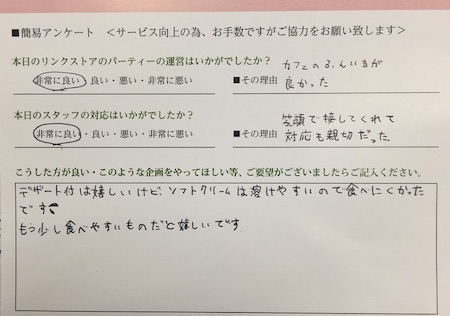 ■簡易アンケート ＜サービス向上の為、お手数ですがご協力をお願い致します＞
本日のリンクストアのパーティーの運営はいかがでしたか？
非常に良い・良い・悪い・非常に悪い
■その理由
カフェのふんいきが
良かった
本日のスタッフの対応はいかがでしたか？
非常に良い・良い・悪い・非常に悪い
■その理由
笑顔で接してくれて
対応も親切だった
こうした方が良い・このような企画をやってほしい等、ご要望がございましたらご記入ください。
デザート付は嬉しいけど、ソフトクリームは溶けやすいので食べにくかった
です
もう少し食べやすいものだと嬉しいです